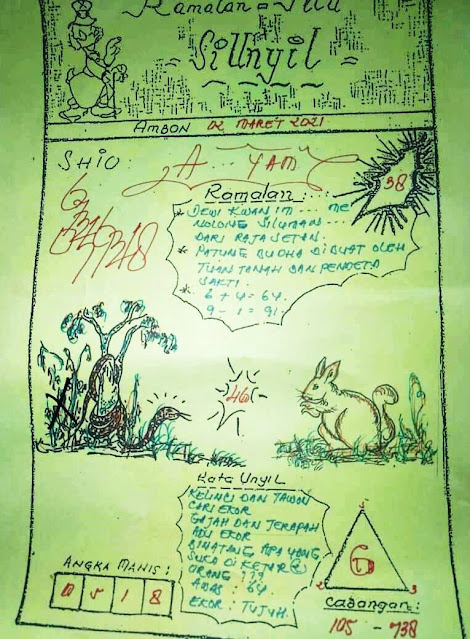 Ramalan =
= SiUnyil =
AMBON 02 MARET 2021
SHIO: A.. YAM
38
Ramalan:
* DEWI KWAN IM ... ME
NOLONG SILUMAN ...
DARI RAJA SETAN.
* PATUNG BUDHA DIBUAT OLEH
TUAN TANAH DAN PENDETA
* SAKTI.
6 + 4 = 64.
9 - 1 = 91.
46
Kata Unyil
KELINCI DAN TAWON
CARI EKOR
GAJAH DAN JERAPAH
ADU EKOR
BINATANG APA YANG
SUKA DI KEJAR@
ORANG ???
ADAS : 64
EKOR : TUJUH.
ANGKA MANIS:
0 5 1 8
5
6
2 3
Cabangan:
105 - 738